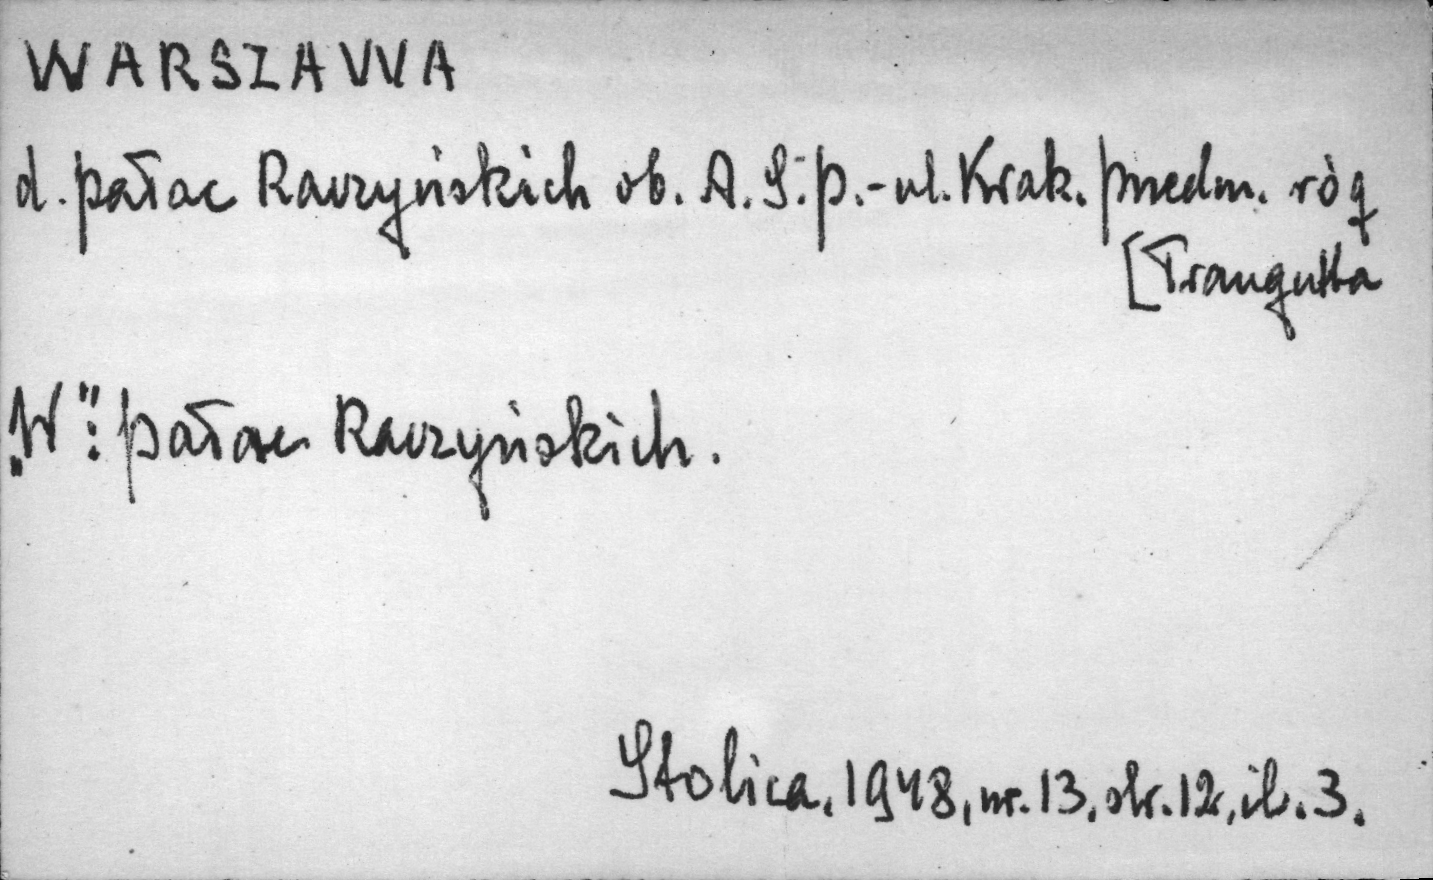 WARSZAWA
d. pałac Raczyńskich ob. A.S.P.-ul. Krak. Przedm. róg
[Traugutta
„W”: pałac Raczyńskich.
Stolica, 1948, nr. 13, str. 12, il. 3.